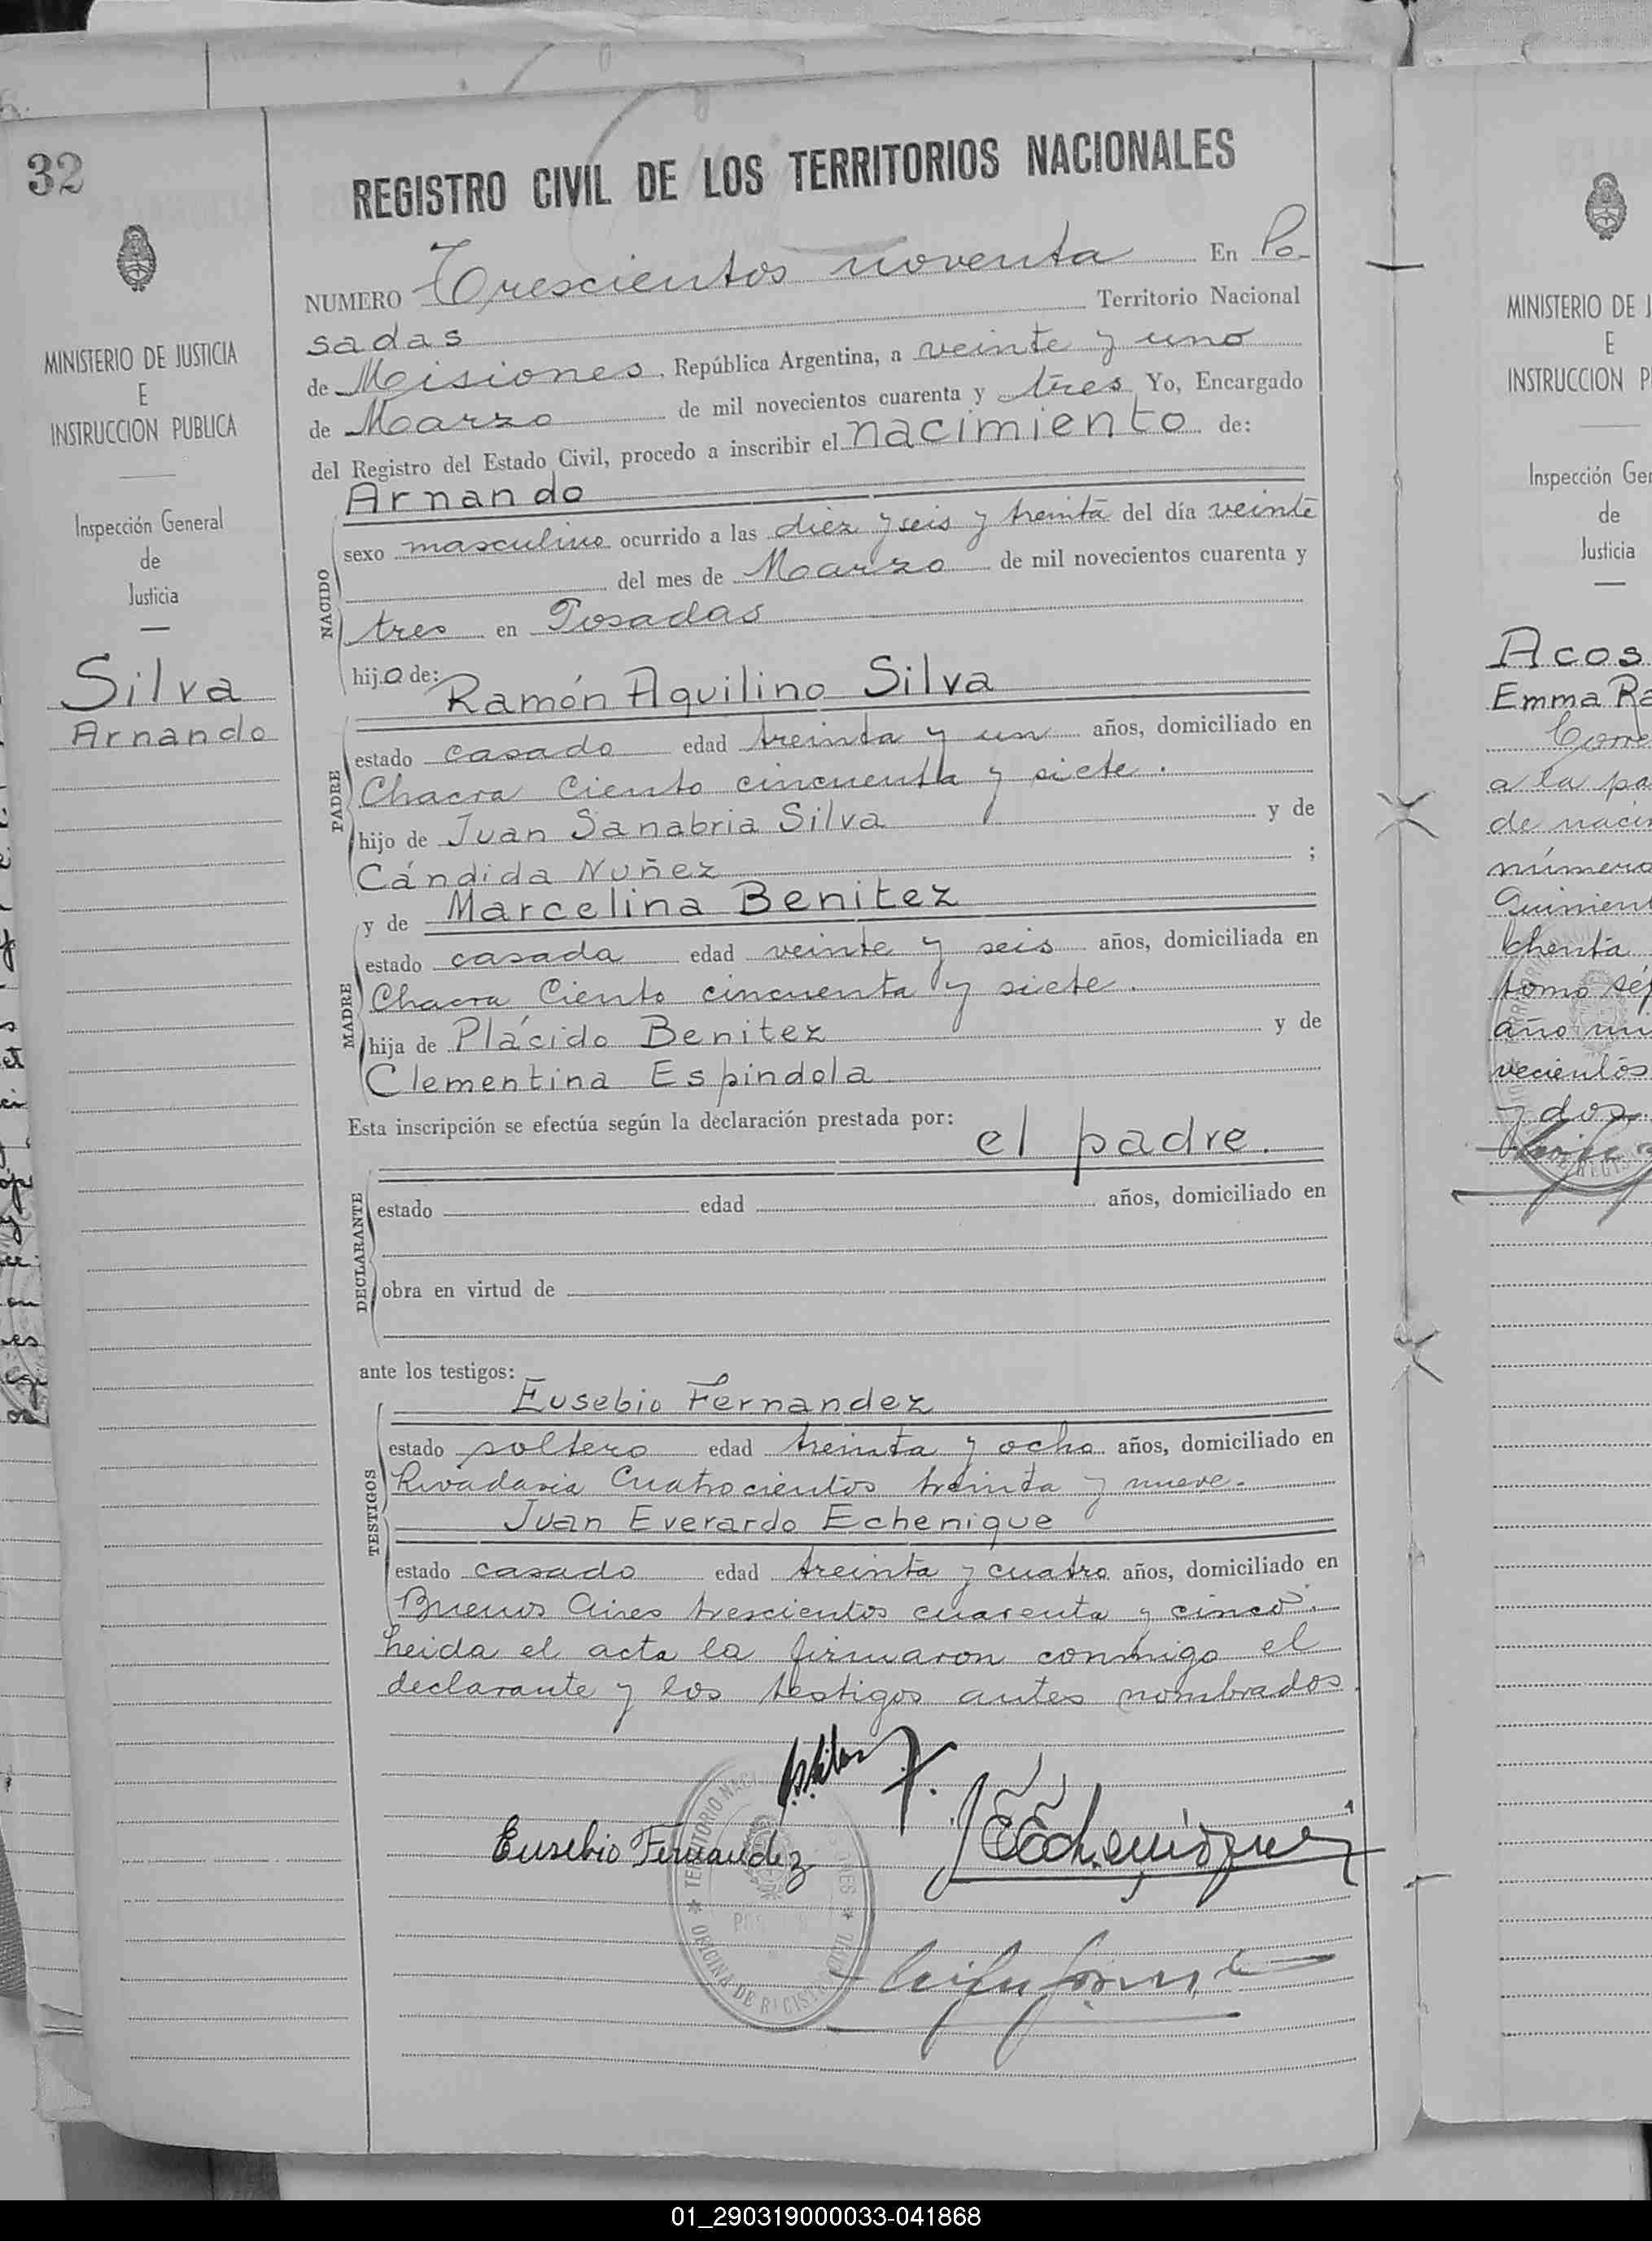 32
REGISTRO CIVIL DE LOS TERRITORIOS NACIONALES
MINISTERIO DE JUSTICIA
E
INSTRUCCION PUBLICA
Inspección General
de
Justicia
Silva
Arnando
NUMERO Trescientos noventa En Po-
sadas Territorio Nacional
de Misiones, República Argentina, a veinte y uno
de Marzo de mil novecientos cuarenta y tres Yo, Encargado
del Registro del Estado Civil, procedo a inscribir el nacimiento de:
Arnando
NACIDO
sexo masculino ocurrido a las diez y seis y treinta del día veinte
del mes de Marzo de mil novecientos cuarenta y
tres en Posadas
hijo de: Ramón Aquilino Silva
PADRE
estado casado edad treinta y un años, domiciliado en
Chacra Ciento cincuenta y siete.
hijo de Juan Sanabria Silva y de
Cándida Nuñez ;
y de Marcelina Benitez
MADRE
estado casada edad veinte y seis años, domiciliada en
Chacra Ciento cincuenta y siete.
hija de Plácido Benitez y de
Clementina Espindola
Esta inscripción se efectúa según la declaración prestada por: el padre.
DECLARANTE
estado edad años, domiciliado en
obra en virtud de
ante los testigos:
Eusebio Fernandez
TESTIGOS
estado soltero edad treinta y ocho años, domiciliado en
Rivadavia Cuatrocientos treinta y nueve.
Juan Everardo Echenique
estado casado edad treinta y cuatro años, domiciliado en
Buenos Aires trescientos cuarenta y cinco.
Leida el acta la firmaron conmigo el
declarante y los testigos antes nombrados.
Eusebio Fernandez
JEEchenique
TERRITORIO NACI
OFICINA DE REGISTRO CIVIL
MINISTERIO DE J
E
INSTRUCCION P
Inspección Gen
de
Justicia
Acos
Emma Ra
Corre
a la pa
de nacim
número
Quinient
chenta
tomo sép
año mi
vecientos
y dos.
01_290319000033-041868